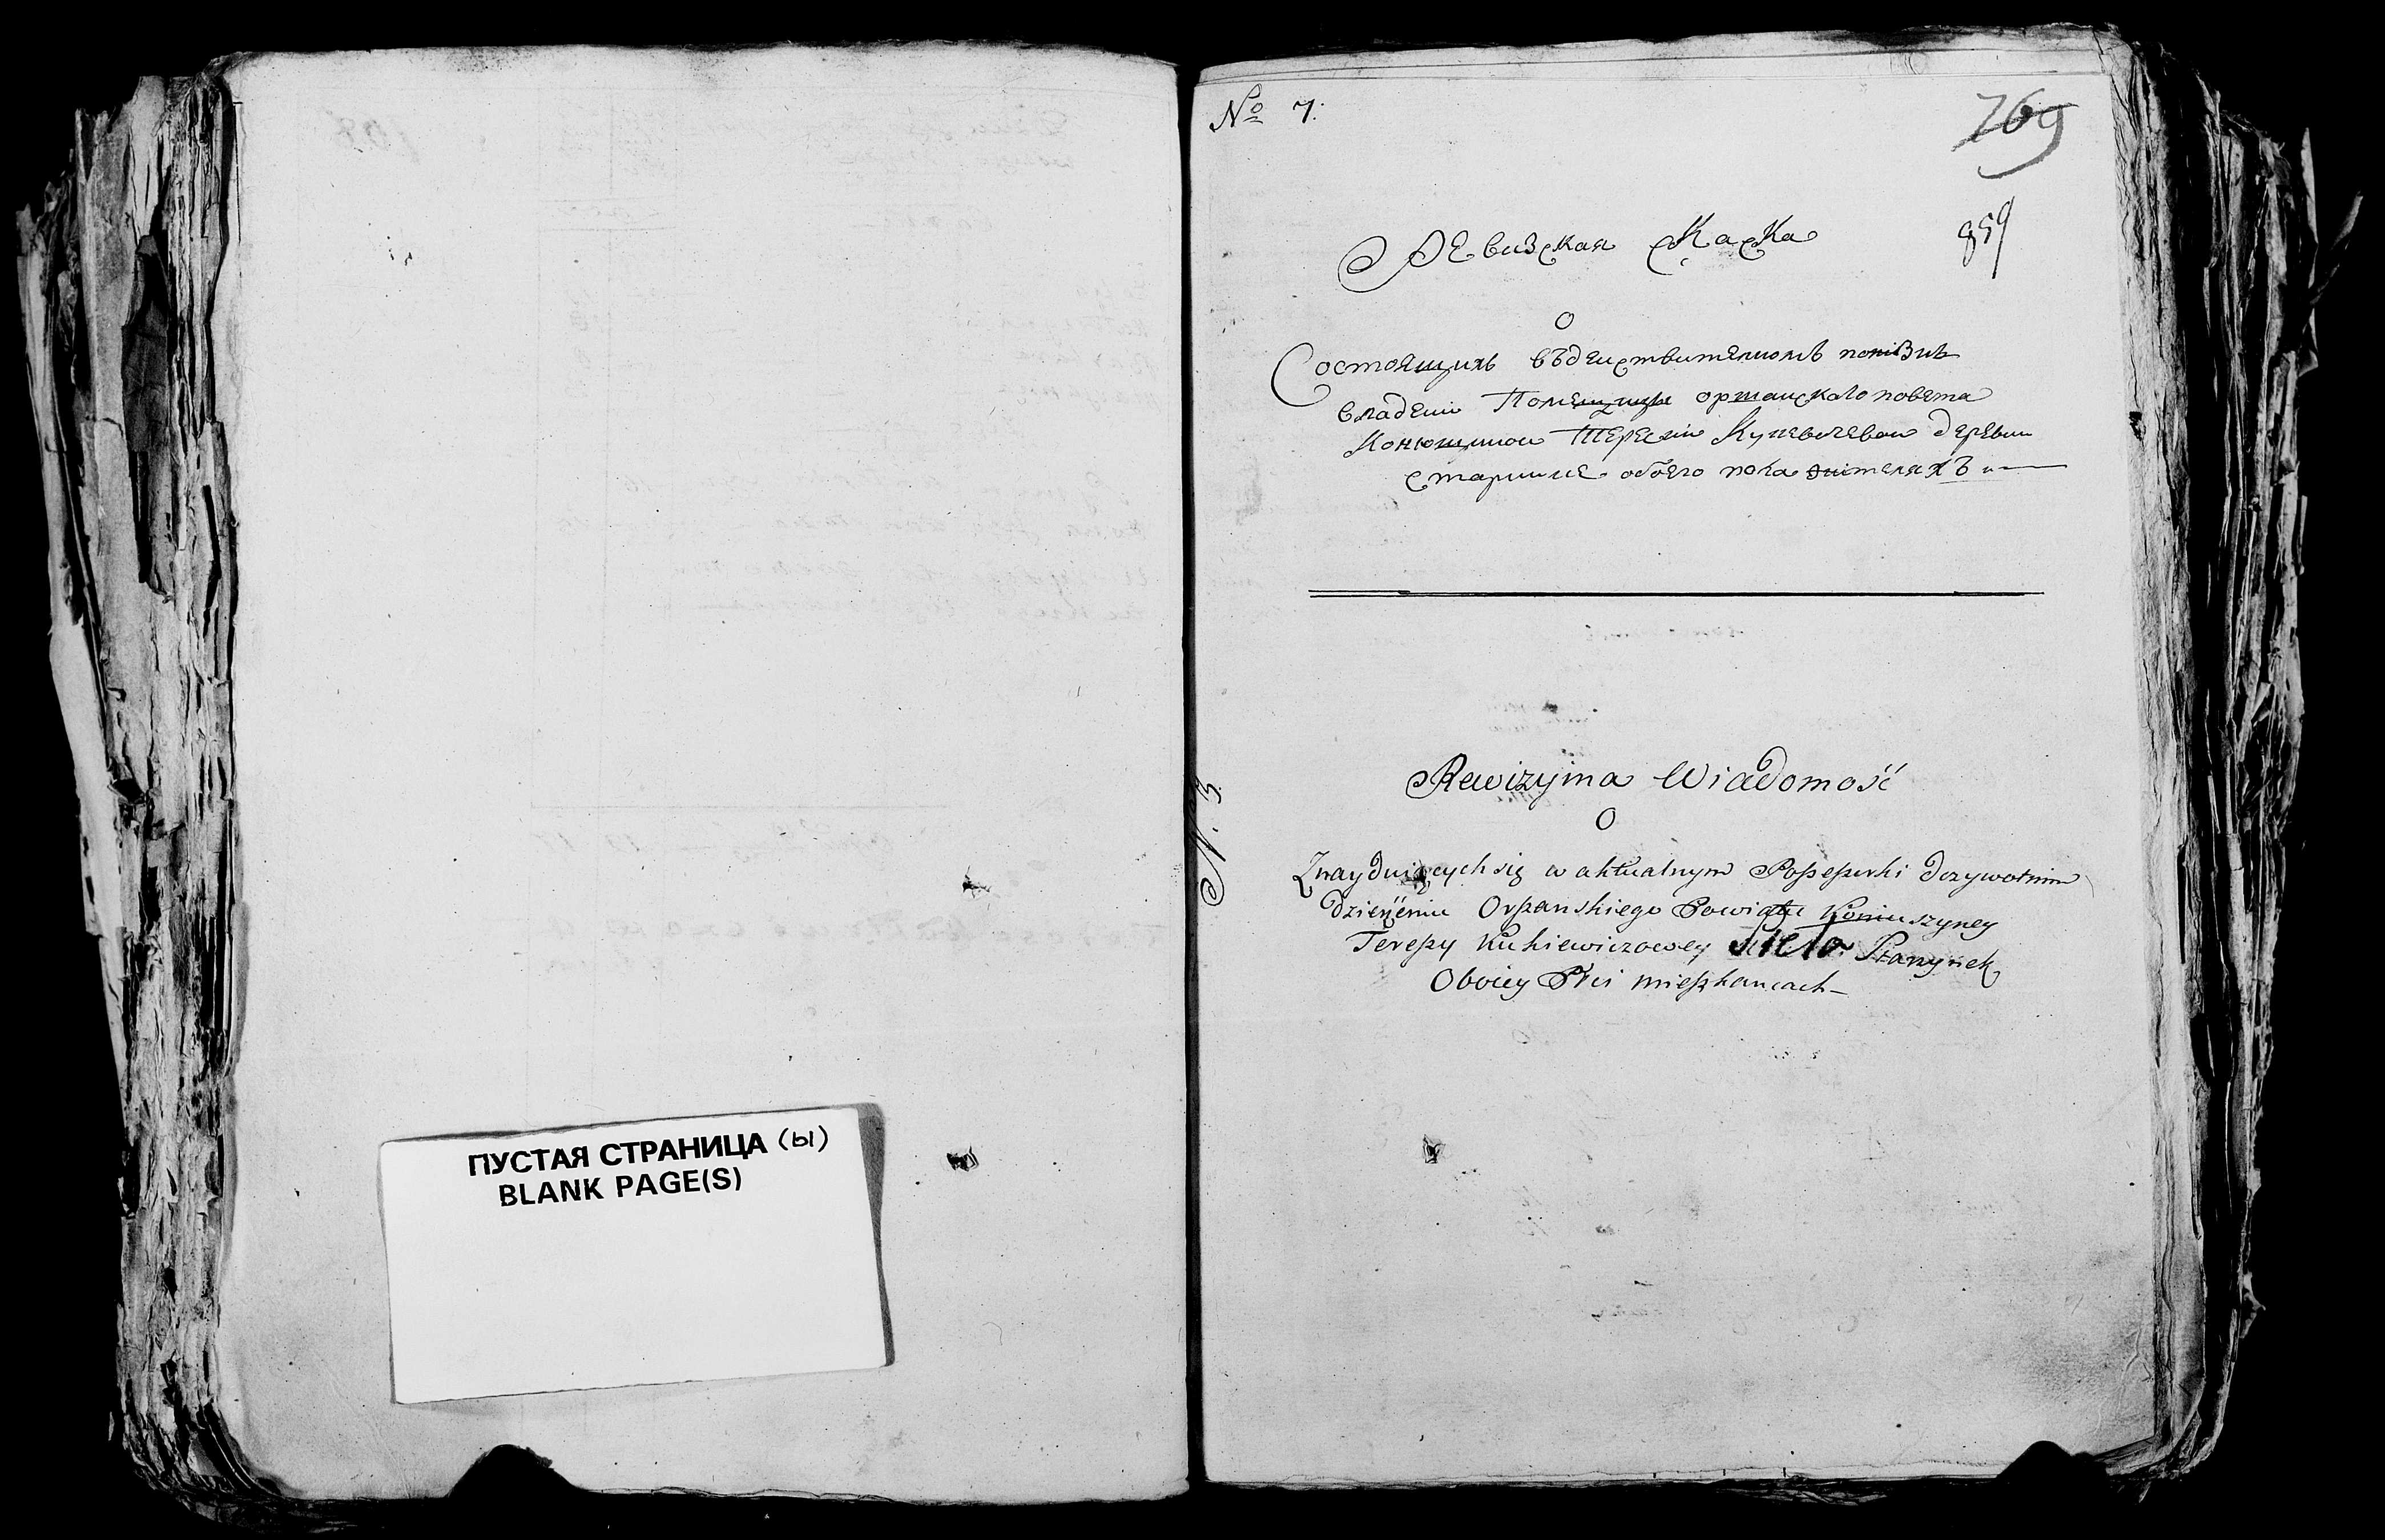 ПУСТАЯ СТРАНИЦА (ы)
BLANK PAGE(S)
№ 7:
769
859
Ревизская скаска
О
Состоящихъ въдеиствителномъ
владени Помещицы оршанскаго повета
Конюшинои Тересии деревни
старинне обоего пола жителяхъ
N. 3
Rewizyina Wiadomość
O
Znayduiących się w aktualnym Possessyi Dożywotnim
dzierżeniu Orszanskiego Powiatu Koniuszyney
Teressy Kukiewiczowey Sieła Starzynek
Oboiey Płci mieszkancach